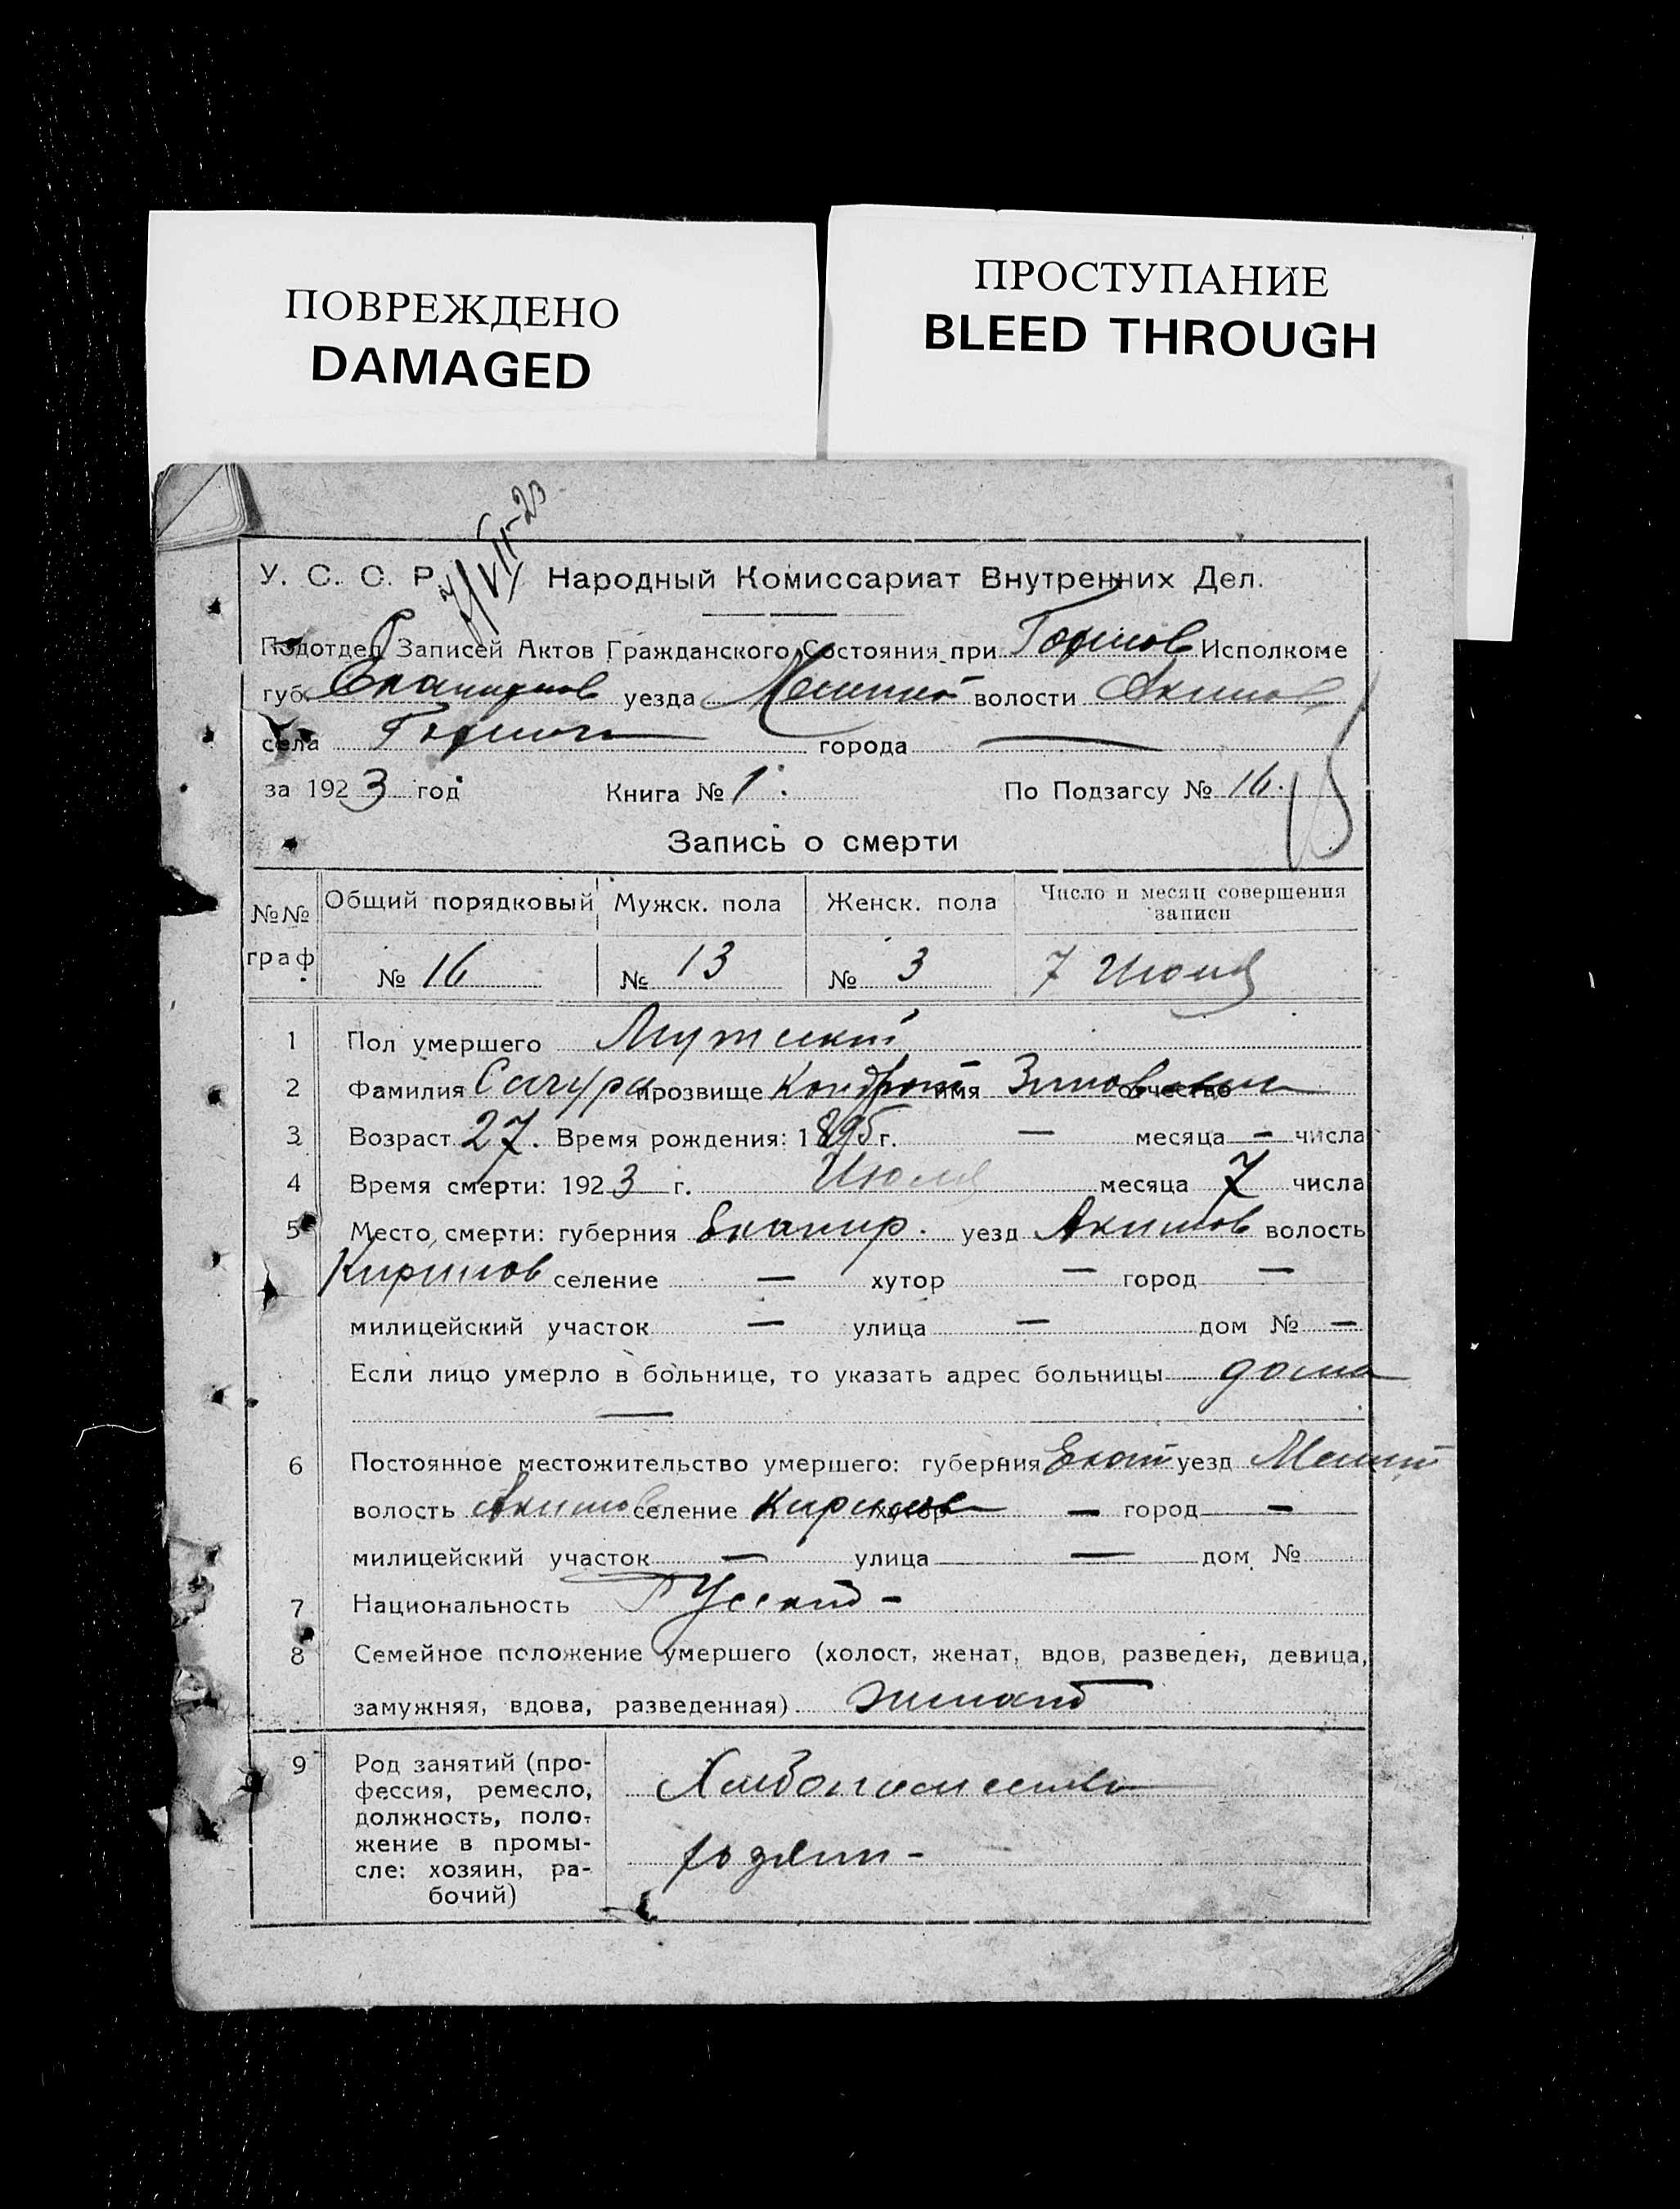 ПОВРЕЖДЕНО
DAMAGED
ПРОСТУПАНИЕ
BLEED THROUGH
7/VII-23
У. С. С. Р. Народный Комиссариат Внутренних Дел.
Подотдел Записей Актов Гражданского Состояния при Исполкоме
губ. уезда волости Акимов
села города —
за 1923 год Книга № 1. По Подзагсу № 16.
Запись о смерти
№№ граф Общий порядковый Мужск. пола Женск. пола Число и месяц совершения записи
№ 16 № 13 № 3 7 Июля
1 Пол умершего Мужской
2 Фамилия Сачура прозвище Кондрат имя Зиновьевич отчество
3 Возраст 27. Время рождения: 1895 г. — месяца — числа
4 Время смерти: 1923 г. Июля месяца 7 числа
5 Место смерти: губерния Екатер. уезд Акимов волость
Кирилов селение — хутор — город —
милицейский участок — улица — дом № —
Если лицо умерло в больнице, то указать адрес больницы дома
—
6 Постоянное местожительство умершего: губерния Екат уезд Мелит
волость Акимов селение Кирилов хутор — город —
милицейский участок — улица — дом №
7 Национальность Русский -
8 Семейное положение умершего (холост, женат, вдов, разведен, девица,
замужняя, вдова, разведенная) женат
9 Род занятий (про-
фессия, ремесло,
должность, поло-
жение в промы-
сле: хозяин, ра-
бочий)
Хлебопашество
хозяин -